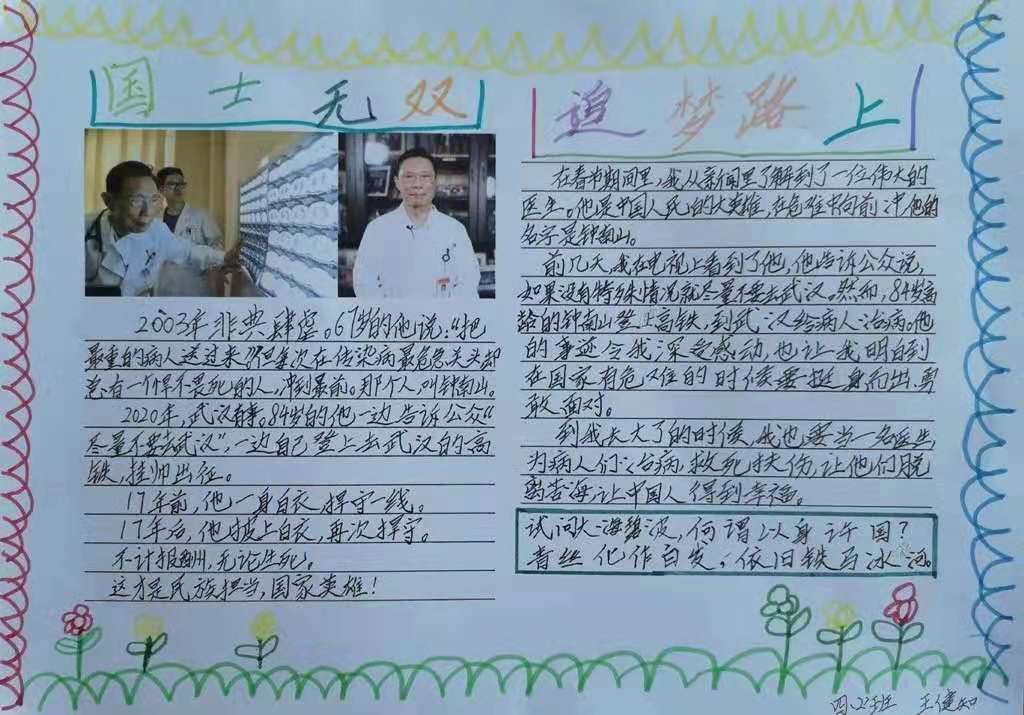 国士无双
2003年非典肆虐。67岁的他说:“把
最重的病人送过来”
次在传染病最危急关头却
总有一个悍不畏死的人,冲到最前。那个人,叫钟南山。
2020年,武汉有毒。84岁的他一边告诉公众“
尽量不要去武汉”,一边自己登上去武汉的高
铁,挂帅出征。
17年前,他一身白衣,捍守一线。
17年后,他披上白衣,再次捍守。
不计报酬,无论生死。
这才是民族担当,国家英雄!
追梦路上
在春节期间里,我从新闻里了解到了一位伟大的
医生。他是中国人民的大英雄,在危难中向前冲,他的
名字是钟南山。
前几天,我在电视上看到了他,他告诉公众说,
如果没有特殊情况就尽量不要去武汉。然而,84岁高
龄的钟南山登上高铁,到武汉给病人治病。他
的事迹令我深受感动,也让我明白到
在国家有危难的时候要挺身而出,勇
敢面对。
到我长大了的时候,我也要当一名医生
为病人们治病,救死扶伤,让他们脱
离苦海,让中国人得到幸福。
试问大海碧波,何谓以身许国?
青丝化作白发,依旧铁马冰河。
四、2班 王健知